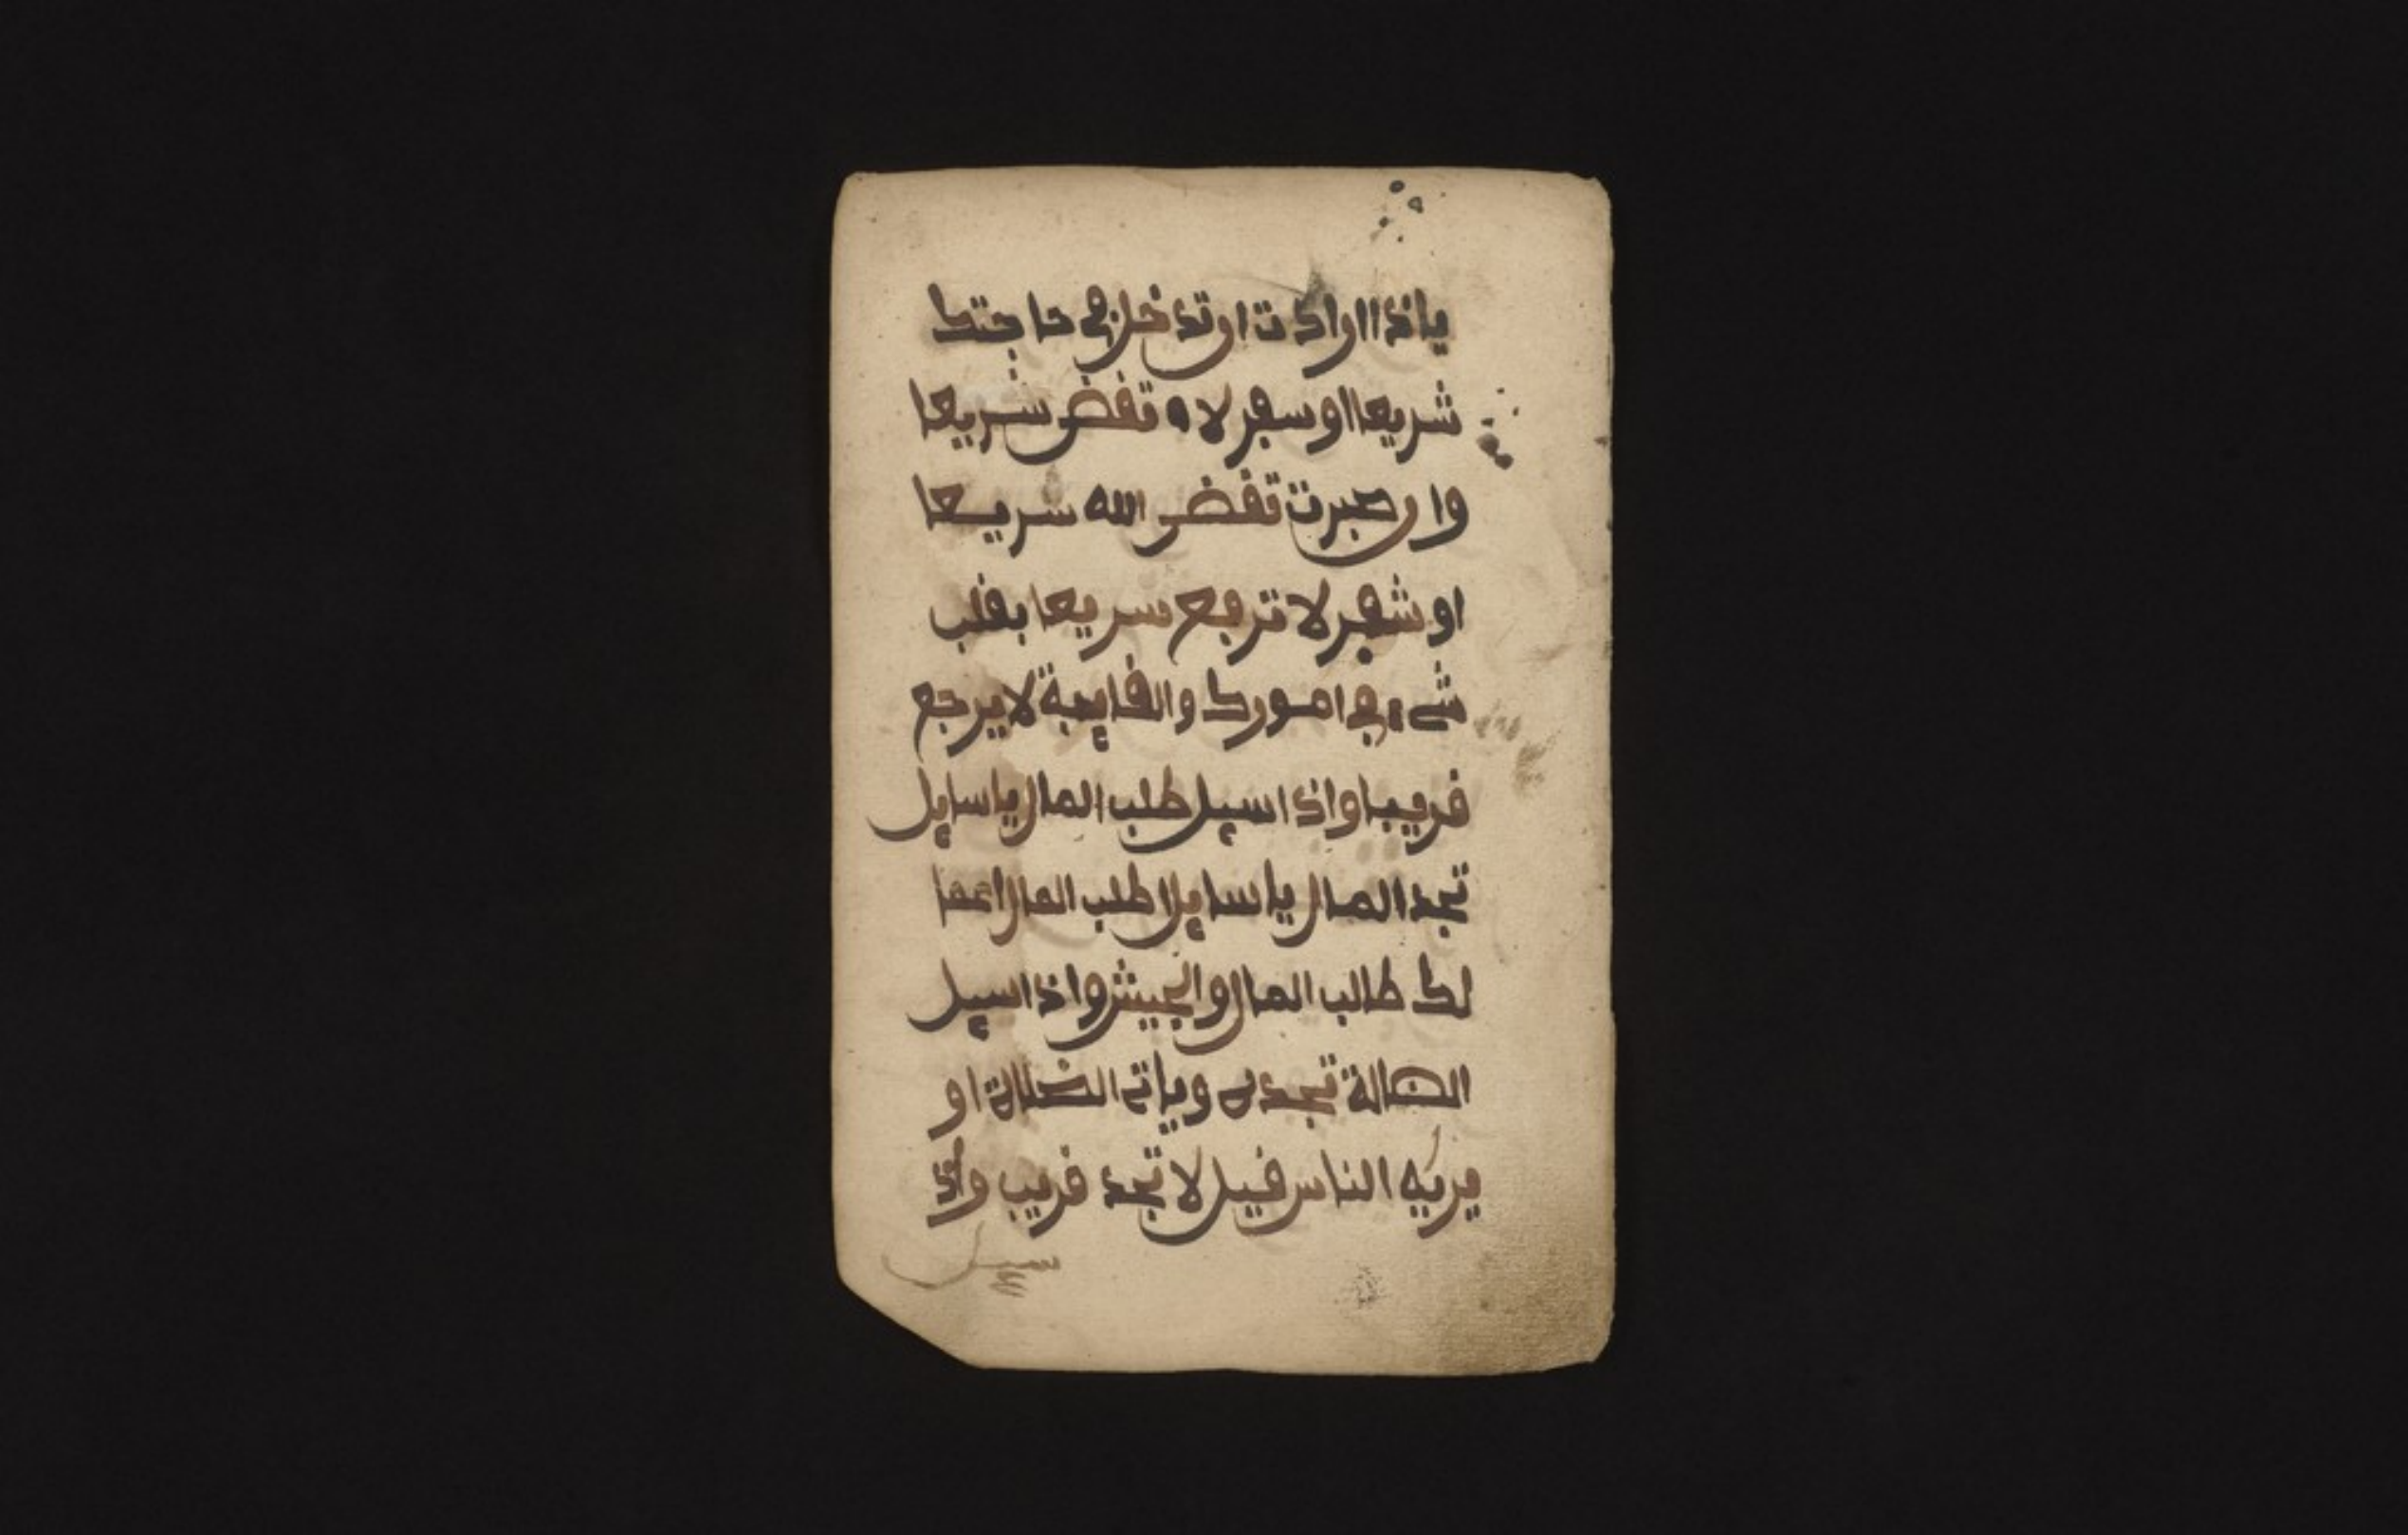 ياذا اراذت ان تذخل في حاجتك
شريعا او سفر لا تقض شريعا
وان صبرت تقض الله شريعا
او شفر لا ترجع سريعا بقلب
شيء في امورك والغايبة لا يرجع
قريبا واذا سيل طلب المال يا سايل
تجد المال يا سايلا طلب المال
لك طالب المال والجيش واذا سيل
الضالة تجده وياتي الضلالة او
يريه الناس قيل لا تجد قريب واذ
سيل